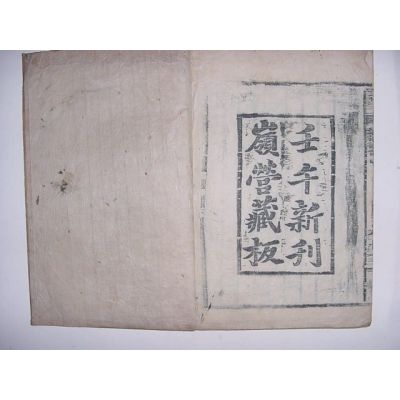 壬午新刊
嶺營藏板